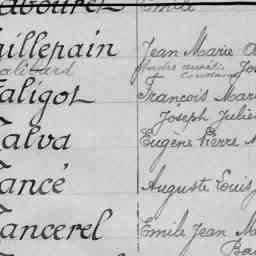 abourel Emile
aillepain Jean Marie
alibard
aligot François Mari
Joseph Julie
alva Eugène Pierre
ancé Auguste Louis
ancerel Emile Jean M